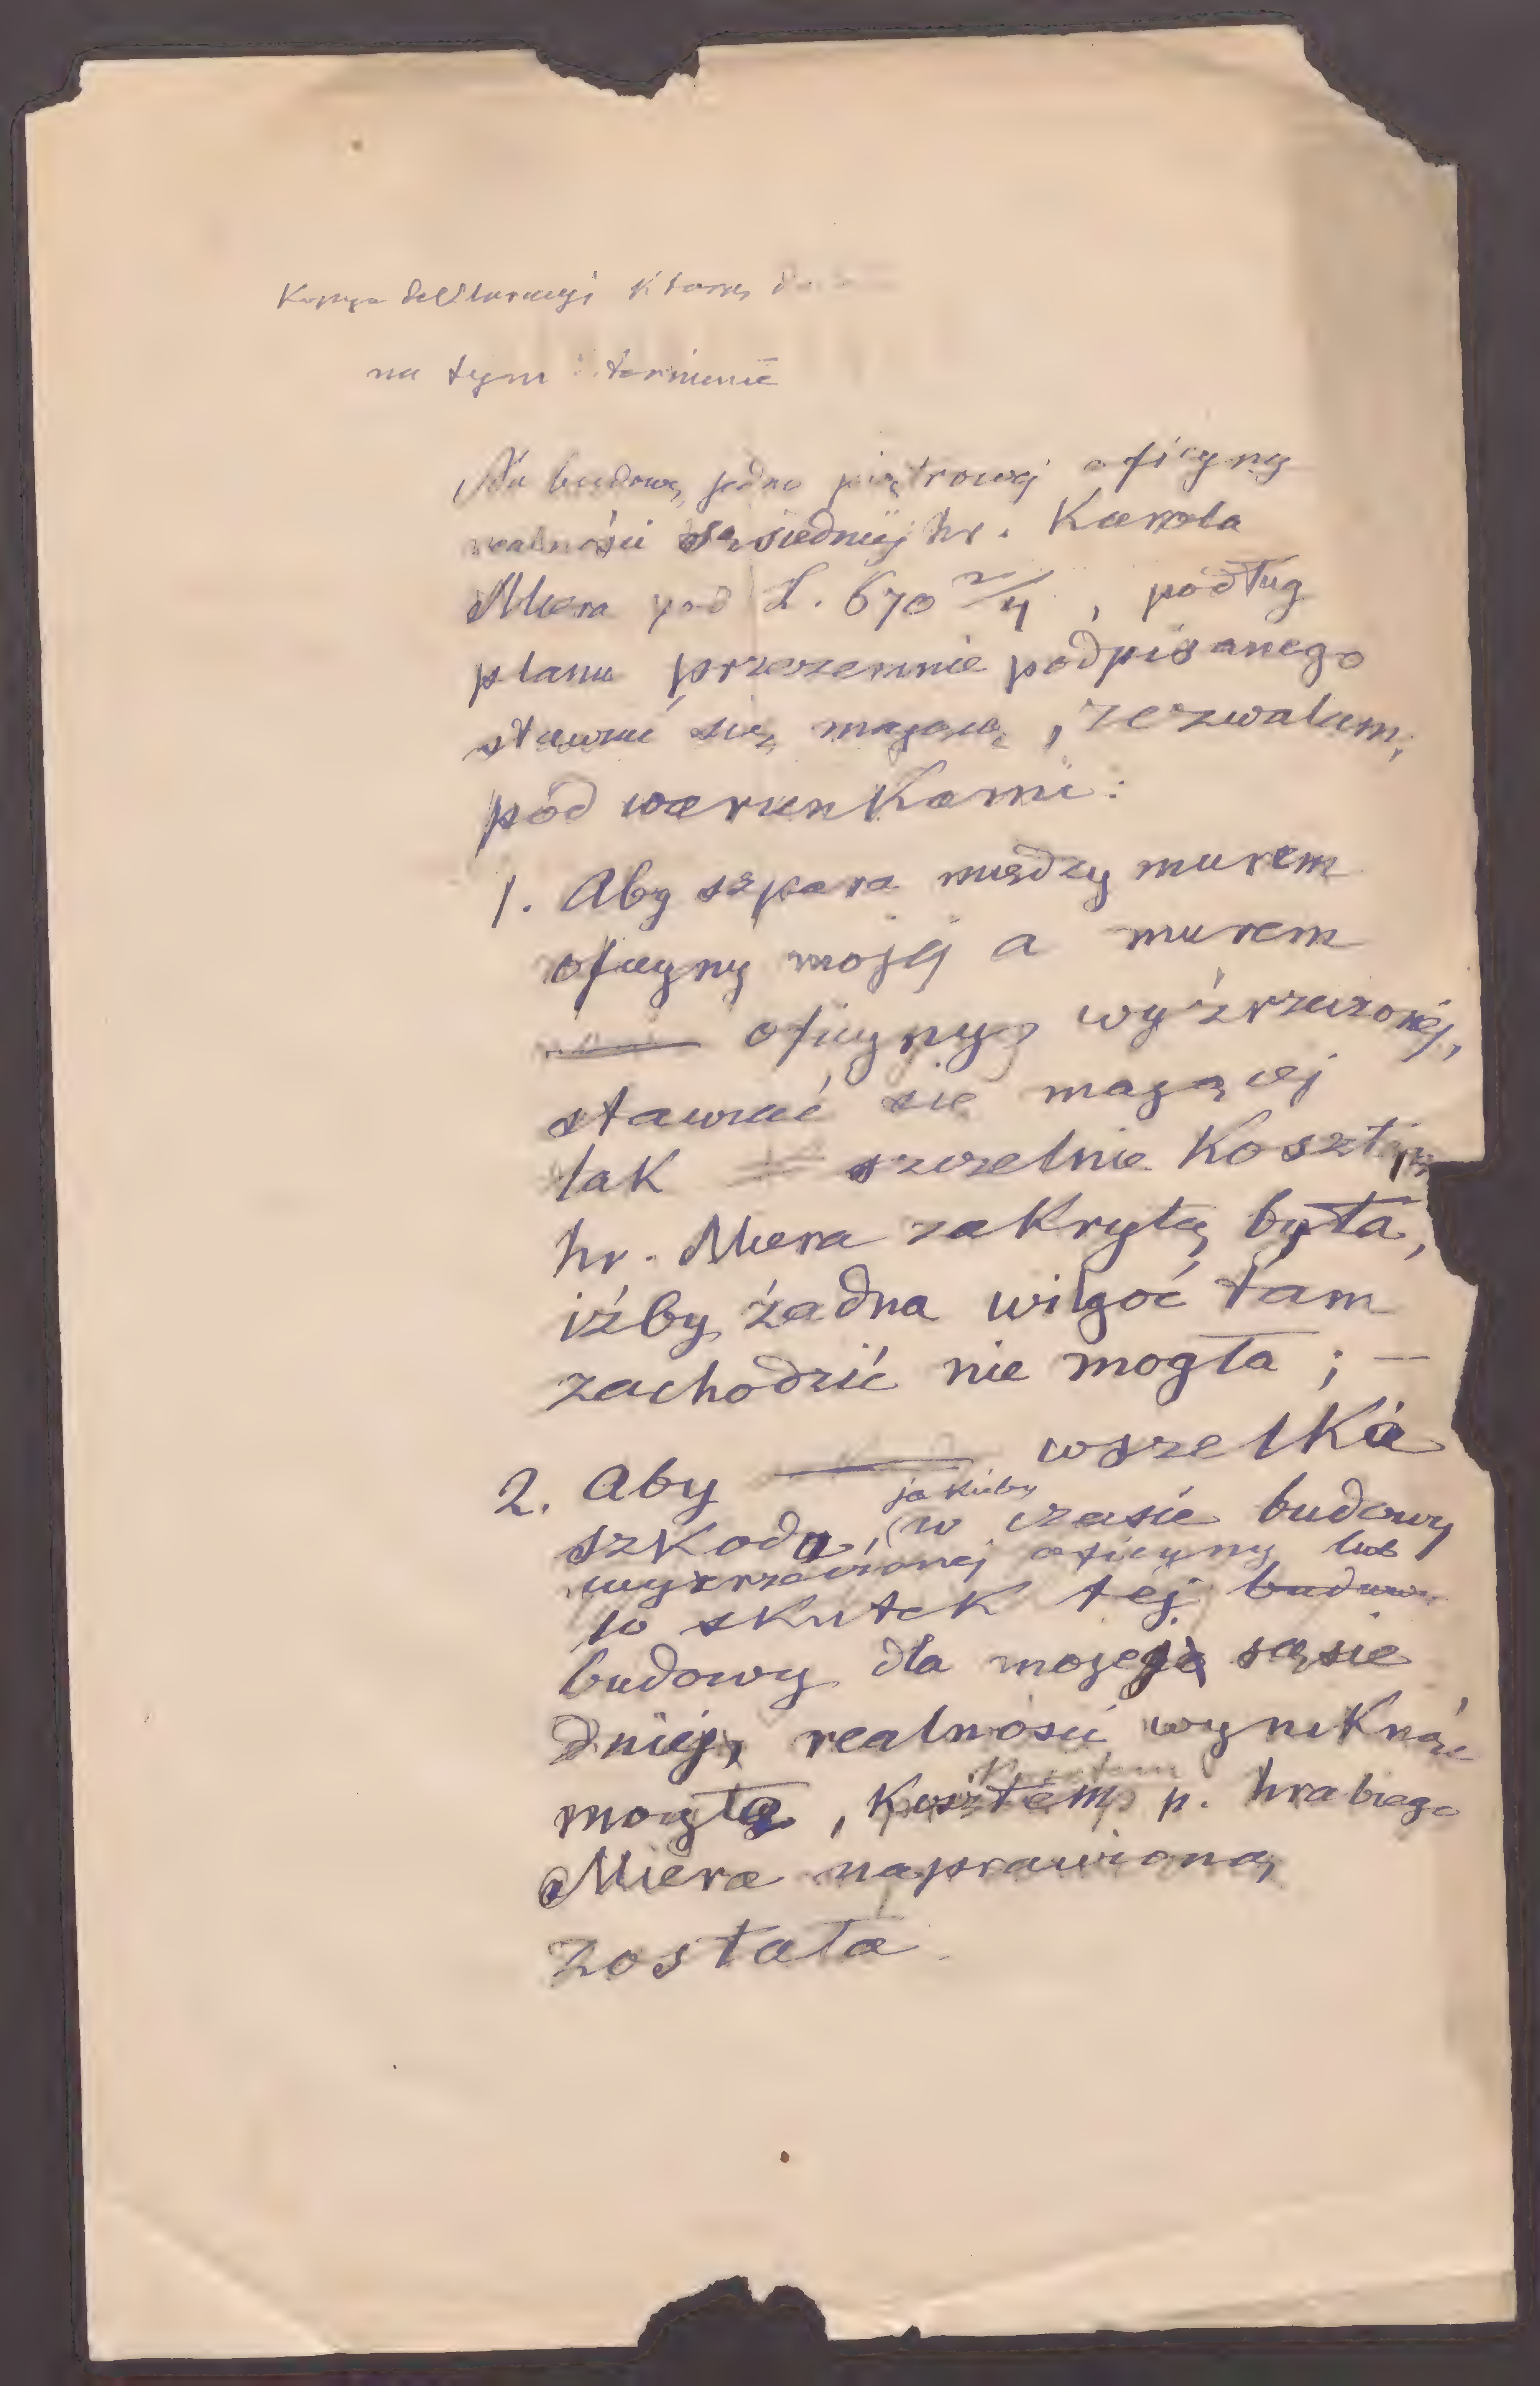 Kopya deklaracyi którą
na tym terminie
Na budowę jedno piętrowej oficyny
realności sąsiedniej hr. Karola
Miera pod L. 670 2/4, podług
planu przezemnie podpisanego
stawiać się mającą, zezwalam,
pod warunkami:
1. Aby szpara między murem
oficyny mojej a murem
oficyny wyżrzeczonej,
stawiać się mającej
tak szczelnie kosztem
hr. Miera zakrytą była,
iżby żadna wilgoć tam
zachodzić nie mogła; —
2. Aby wszelka
szkoda, jakiaby w czasie budowy
wyżrzeczonej oficyny lub
w skutek tej budow
budowy dla mojej sąsie
dniej, realności wyniknąć
mogła, kosztem p. hrabiego
Miera naprawioną
została